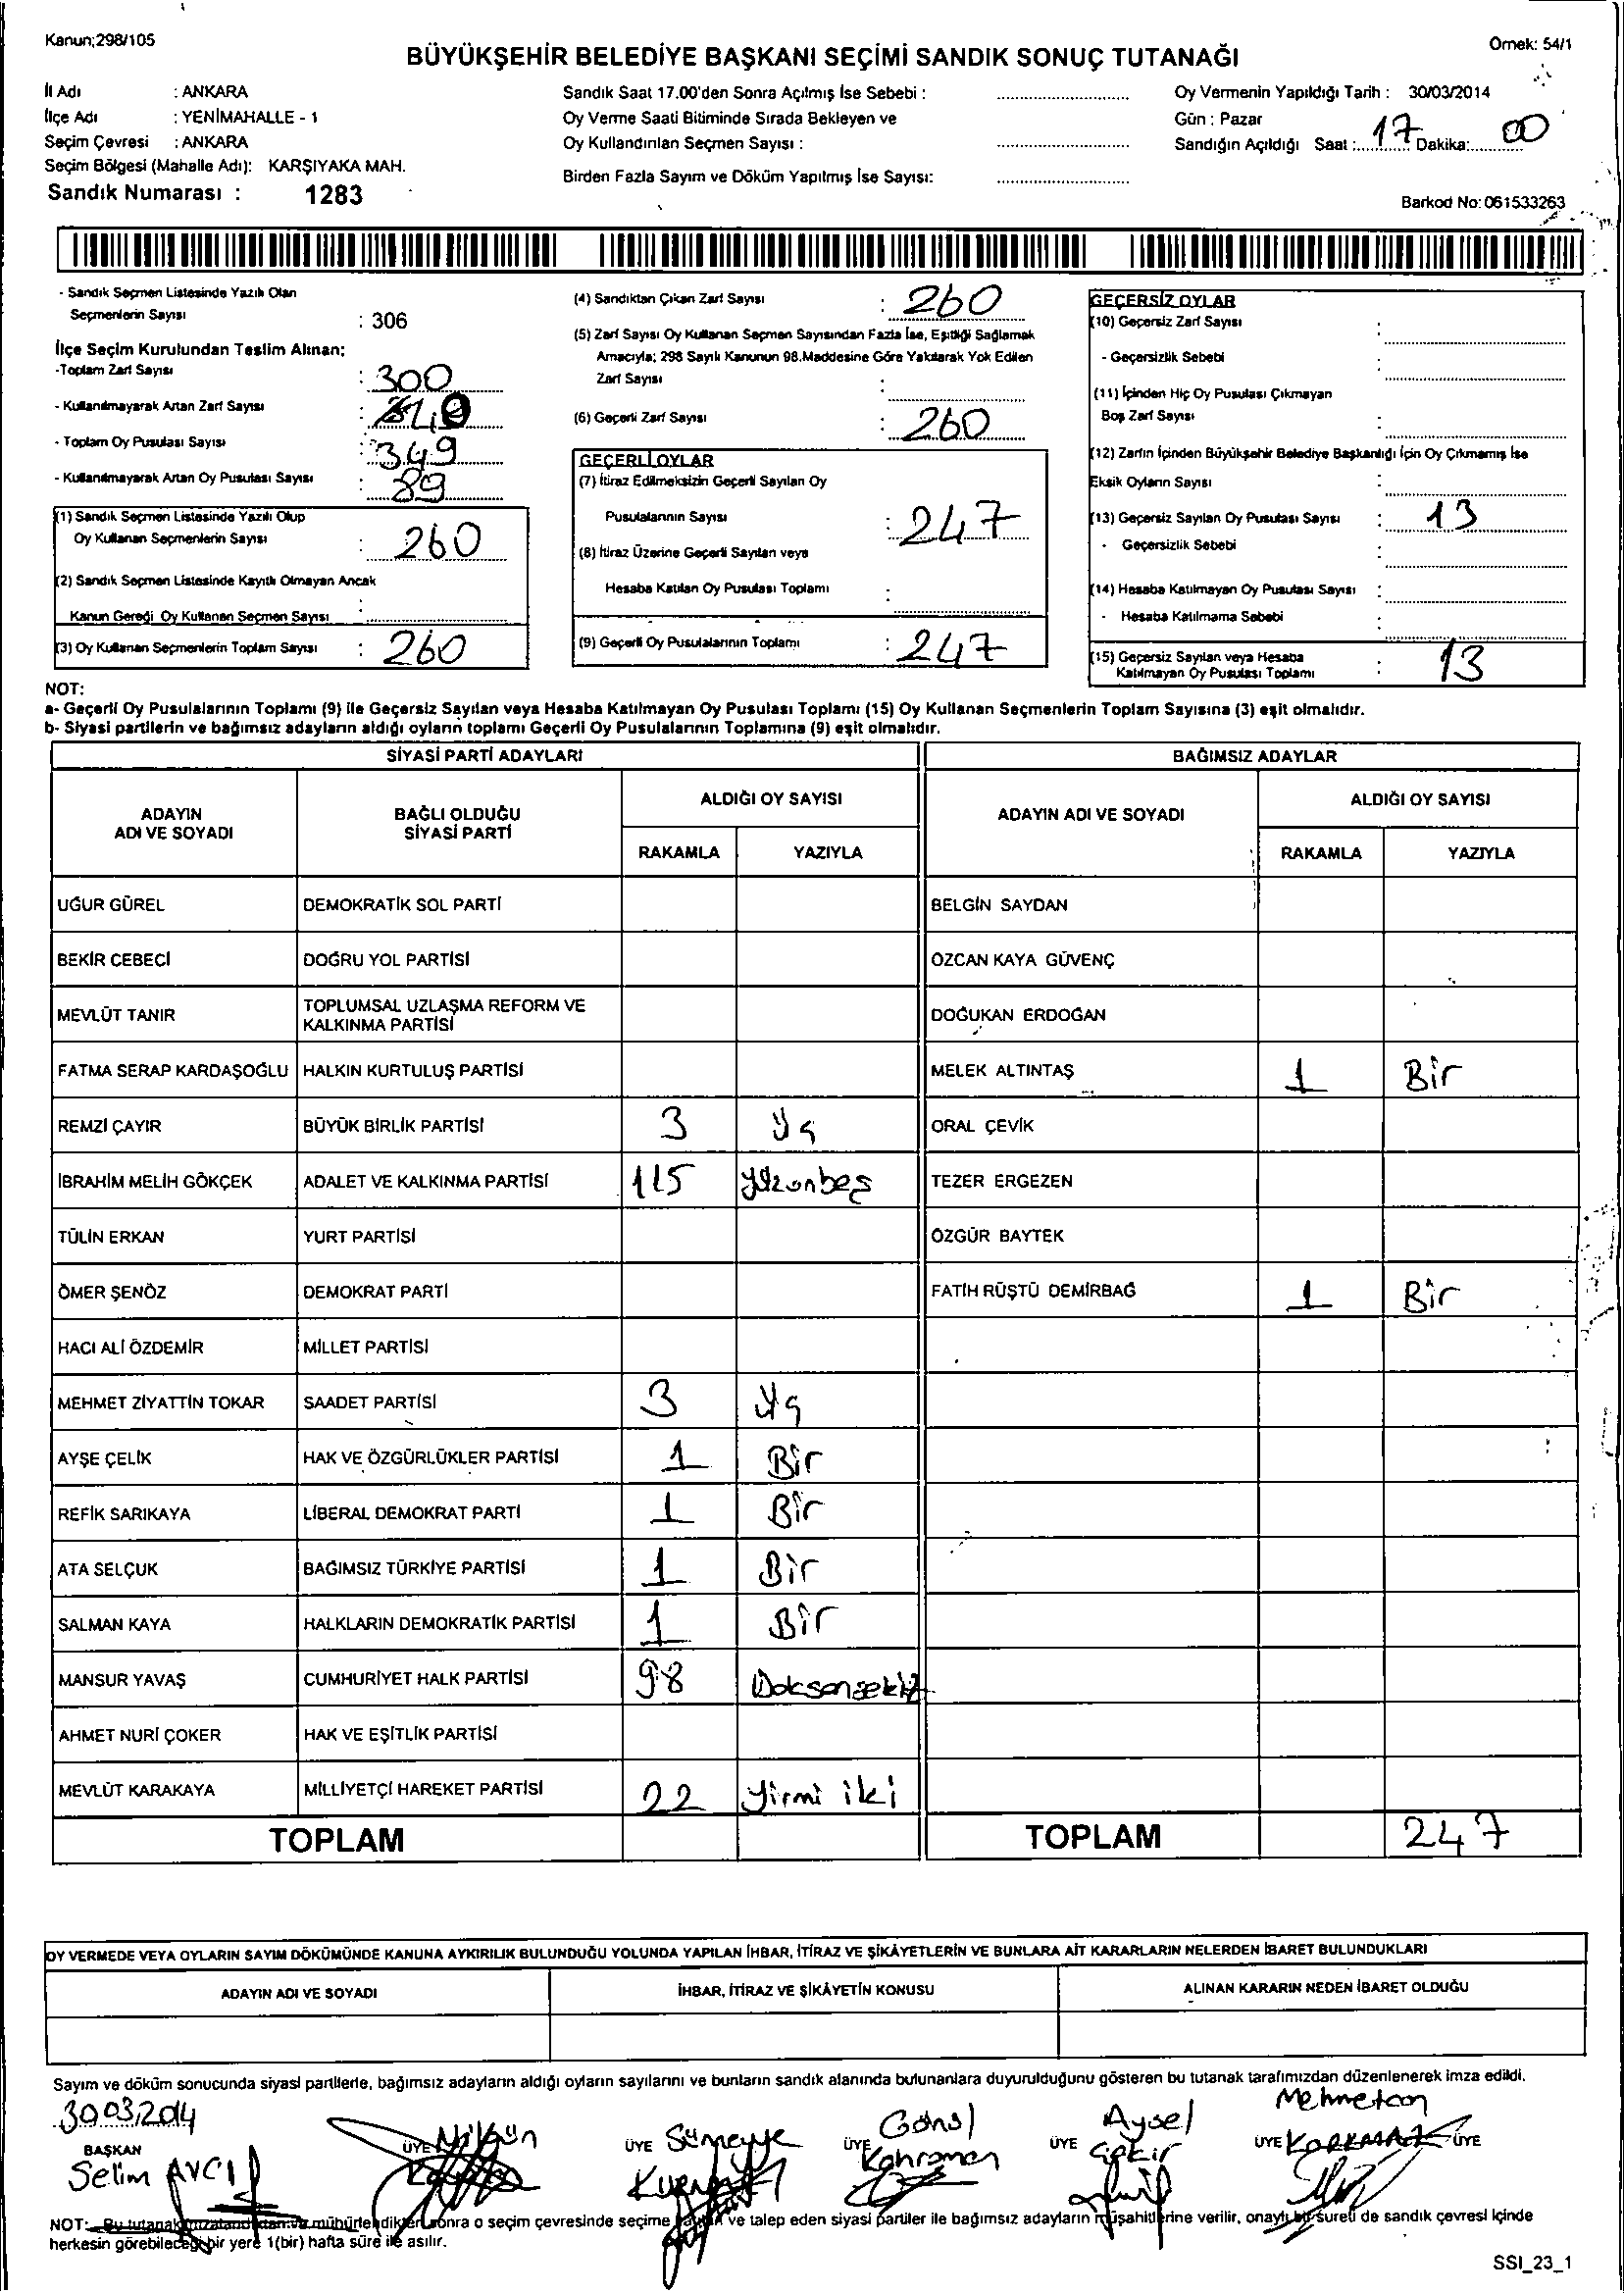 Kanun;298/105
Örnek: 54/1
BÜYÜKŞEHİR BELEDİYE BAŞKANI SEÇİMİ SANDIK SONUÇ TUTANAĞI
İl Adı : ANKARA
İlçe Adı : YENİMAHALLE - 1
Seçim Çevresi : ANKARA
Seçim Bölgesi (Mahalle Adı): KARŞIYAKA MAH.
Sandık Numarası : 1283
Sandık Saat 17.00'den Sonra Açılmış İse Sebebi :
Oy Verme Saati Bitiminde Sırada Bekleyen ve
Oy Kullandırılan Seçmen Sayısı :
Birden Fazla Sayım ve Döküm Yapılmış İse Sayısı:
Oy Vermenin Yapıldığı Tarih : 30/03/2014
Gün : Pazar
Sandığın Açıldığı Saat : 17 Dakika: 00
Barkod No: 061533263
- Sandık Seçmen Listesinde Yazılı Olan
Seçmenlerin Sayısı : 306
İlçe Seçim Kurulundan Teslim Alınan;
-Toplam Zarf Sayısı : 300
- Kullanılmayarak Artan Zarf Sayısı :
- Toplam Oy Pusulası Sayısı : 349
- Kullanılmayarak Artan Oy Pusulası Sayısı : 89
(1) Sandık Seçmen Listesinde Yazılı Olup
Oy Kullanan Seçmenlerin Sayısı : 260
(2) Sandık Seçmen Listesinde Kayıtlı Olmayan Ancak
Kanun Gereği Oy Kullanan Seçmen Sayısı :
(3) Oy Kullanan Seçmenlerin Toplam Sayısı : 260
(4) Sandıktan Çıkan Zarf Sayısı : 260
(5) Zarf Sayısı Oy Kullanan Seçmen Sayısından Fazla İse, Eşitliği Sağlamak
Amacıyla; 298 Sayılı Kanunun 98.Maddesine Göre Yakılarak Yok Edilen
Zarf Sayısı :
(6) Geçerli Zarf Sayısı : 260
GEÇERLİ OYLAR
(7) İtiraz Edilmeksizin Geçerli Sayılan Oy
Pusulalarının Sayısı : 247
(8) İtiraz Üzerine Geçerli Sayılan veya
Hesaba Katılan Oy Pusulası Toplamı :
(9) Geçerli Oy Pusulalarının Toplamı : 247
GEÇERSİZ OYLAR
(10) Geçersiz Zarf Sayısı :
- Geçersizlik Sebebi :
(11) İçinden Hiç Oy Pusulası Çıkmayan
Boş Zarf Sayısı :
(12) Zarfın İçinden Büyükşehir Belediye Başkanlığı İçin Oy Çıkmamış İse
Eksik Oyların Sayısı :
(13) Geçersiz Sayılan Oy Pusulası Sayısı : 13
- Geçersizlik Sebebi :
(14) Hesaba Katılmayan Oy Pusulası Sayısı :
- Hesaba Katılmama Sebebi :
(15) Geçersiz Sayılan veya Hesaba
Katılmayan Oy Pusulası Toplamı : 13
NOT:
a- Geçerli Oy Pusulalarının Toplamı (9) ile Geçersiz Sayılan veya Hesaba Katılmayan Oy Pusulası Toplamı (15) Oy Kullanan Seçmenlerin Toplam Sayısına (3) eşit olmalıdır.
b- Siyasi partilerin ve bağımsız adayların aldığı oyların toplamı Geçerli Oy Pusulalarının Toplamına (9) eşit olmalıdır.
SİYASİ PARTİ ADAYLARI BAĞIMSIZ ADAYLAR
ADAYIN ADI VE SOYADI BAĞLI OLDUĞU SİYASİ PARTİ ALDIĞI OY SAYISI ADAYIN ADI VE SOYADI ALDIĞI OY SAYISI
RAKAMLA YAZIYLA RAKAMLA YAZIYLA
UĞUR GÜREL DEMOKRATİK SOL PARTİ BELGİN SAYDAN
BEKİR CEBECİ DOĞRU YOL PARTİSİ ÖZCAN KAYA GÜVENÇ
MEVLÜT TANIR TOPLUMSAL UZLAŞMA REFORM VE KALKINMA PARTİSİ DOĞUKAN ERDOĞAN
FATMA SERAP KARDAŞOĞLU HALKIN KURTULUŞ PARTİSİ MELEK ALTINTAŞ 1 Bir
REMZİ ÇAYIR BÜYÜK BİRLİK PARTİSİ 3 Üç ORAL ÇEVİK
İBRAHİM MELİH GÖKÇEK ADALET VE KALKINMA PARTİSİ 115 yüzonbeş TEZER ERGEZEN
TÜLİN ERKAN YURT PARTİSİ ÖZGÜR BAYTEK
ÖMER ŞENÖZ DEMOKRAT PARTİ FATİH RÜŞTÜ DEMİRBAĞ 1 Bir
HACI ALİ ÖZDEMİR MİLLET PARTİSİ
MEHMET ZİYATTİN TOKAR SAADET PARTİSİ 3 Üç
AYŞE ÇELİK HAK VE ÖZGÜRLÜKLER PARTİSİ 1 Bir
REFİK SARIKAYA LİBERAL DEMOKRAT PARTİ 1 Bir
ATA SELÇUK BAĞIMSIZ TÜRKİYE PARTİSİ 1 Bir
SALMAN KAYA HALKLARIN DEMOKRATİK PARTİSİ 1 Bir
MANSUR YAVAŞ CUMHURİYET HALK PARTİSİ 98 Doksansekiz
AHMET NURİ ÇOKER HAK VE EŞİTLİK PARTİSİ
MEVLÜT KARAKAYA MİLLİYETÇİ HAREKET PARTİSİ 22 Yirmi iki
TOPLAM TOPLAM 247
OY VERMEDE VEYA OYLARIN SAYIM DÖKÜMÜNDE KANUNA AYKIRILIK BULUNDUĞU YOLUNDA YAPILAN İHBAR, İTİRAZ VE ŞİKÂYETLERİN VE BUNLARA AİT KARARLARIN NELERDEN İBARET BULUNDUKLARI
ADAYIN ADI VE SOYADI İHBAR, İTİRAZ VE ŞİKÂYETİN KONUSU ALINAN KARARIN NEDEN İBARET OLDUĞU
Sayım ve döküm sonucunda siyasi partilerle, bağımsız adayların aldığı oyların sayılarını ve bunların sandık alanında bulunanlara duyurulduğunu gösteren bu tutanak tarafımızdan düzenlenerek imza edildi.
30.03.2014
BAŞKAN ÜYE ÜYE ÜYE ÜYE ÜYE ÜYE
Selim AVCI Nilgün Sümeyye Gönül Kahraman Aysel Çakır Mehmetcan KORKMAZ
NOT: Bu tutanak imzalandıktan ve mühürlendikten sonra o seçim çevresinde seçime katılan ve talep eden siyasi partiler ile bağımsız adayların müşahitlerine verilir, onaylı bir sureti de sandık çevresi içinde
herkesin görebileceği bir yere 1(bir) hafta süre ile asılır.
SSI_23_1